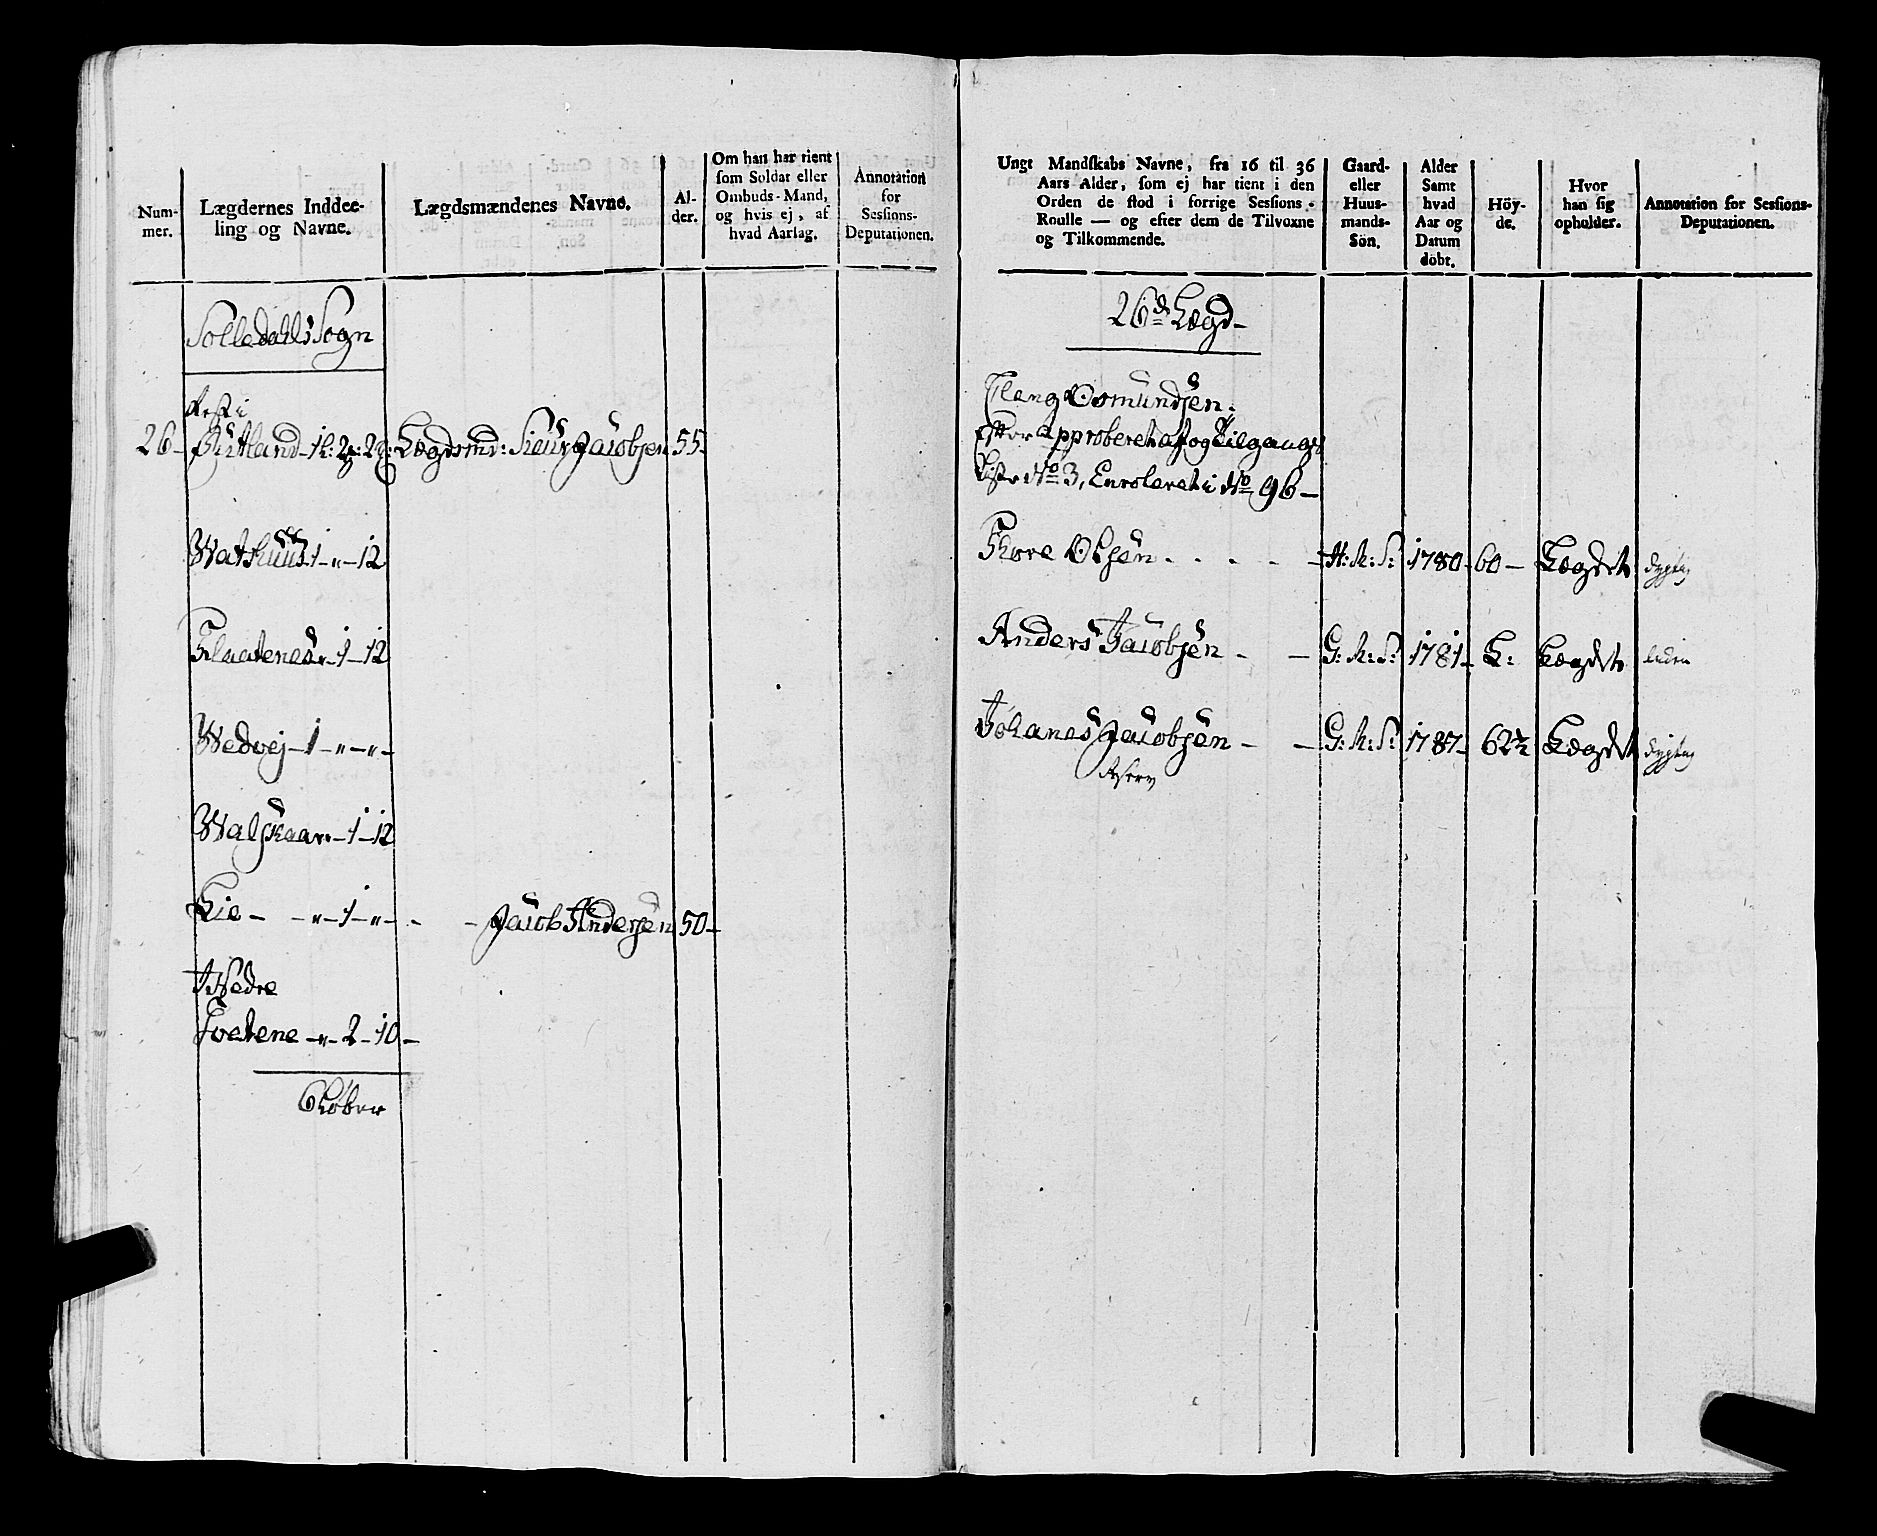 Num-
mer.
Lægdernes Inddee-
ling og Navne.
Lægdsmændenes Navne.
Al-
der.
Om han har tient
som Soldat eller
Ombuds-Mand,
og hvis ej, af
hvad Aarsag.
Annotation
for
Sessions-
Deputationen.
Solledahls Sogn
Rest i
26 - Rutland - 1 L: 2 p: 22 Lægdsmd: Siur Jacobsen 55 -
Watshuus - 1 - " - 12
Flaatenes " - 1 - 12
Wedvej - 1 - " - " -
Walskaar " - 1 - 12
Lie - - " - 1 - " - - - Jacob Andersen 50 -
Nedre
Tvetene - " - 2 - 10 -
6 Løber
Ungt Mandskabs Navne, fra 16 til 36
Aars Alder, som ej har tient i den
Orden de stod i forrige Sessions-
Roulle — og efter dem de Tilvoxne
og Tilkommende.
Gaard-
eller
Huus-
mands-
Sön.
Alder
Samt
hvad
Aar og
Datum
döbt.
Höy-
de.
Hvor
han sig
opholder.
Annotation for Sessions-
Deputationen.
26d Lægd -
Osmundsen
Efter Approberet af og Tilgangs
Liste No 3, Enroleret i No 96 -
Thore Olsen - - - - H: M: S: 1780 - 60 - Lægdet dygtig
Anders Jacobsen - - G: M: S: 1781 - L: Lægdet liden
Johanes Jacobsen - - G: M: S: 1787 - 62½ Lægdet dygtig
Reserv